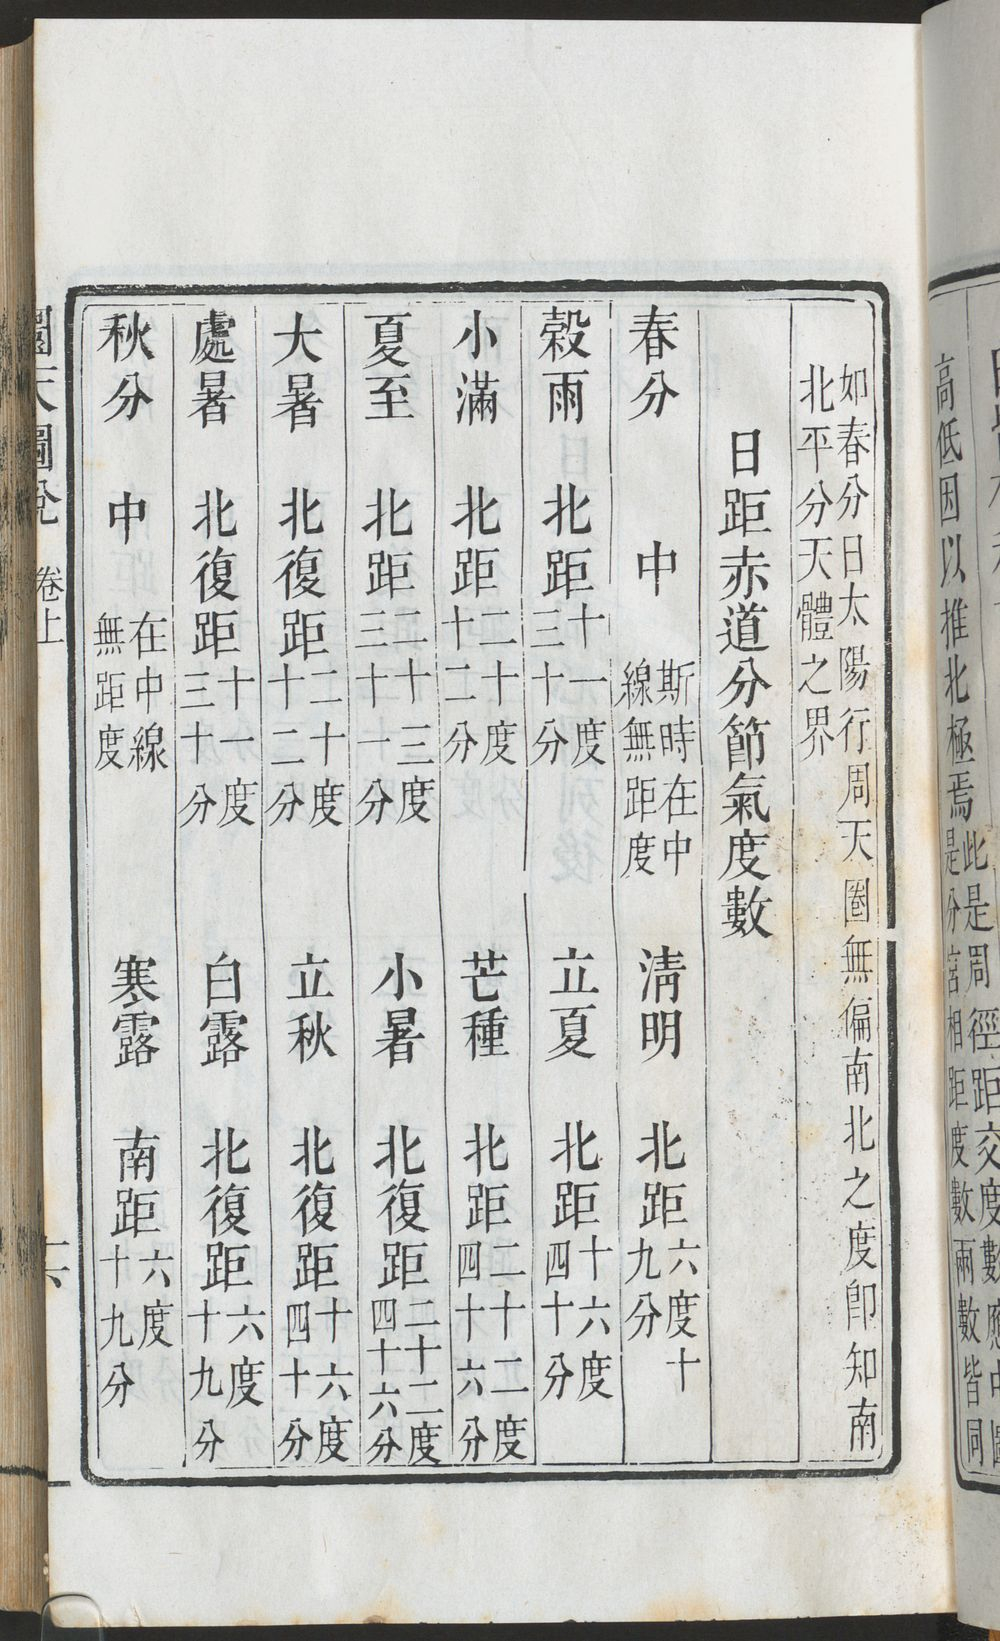 高低因以推北極焉是分宮相距度數兩數皆同
如春分日太陽行周天圈無偏南北之度卽知南
北平分天體之界
日距赤道分節氣度數
春分 中 斯時在中線無距度 淸明 北距六度十九分
穀雨 北距十一度三十分 立夏 北距十六度四十分
小滿 北距二十度十二分 芒種 北距二十二度四十六分
夏至 北距二十三度三十一分 小暑 北復距二十二度四十六分
大暑 北復距二十度十二分 立秋 北復距十六度四十分
處暑 北復距十一度三十分 白露 北復距六度十九分
秋分 中 在中線無距度 寒露 南距六度十九分
圜天圖說 卷上